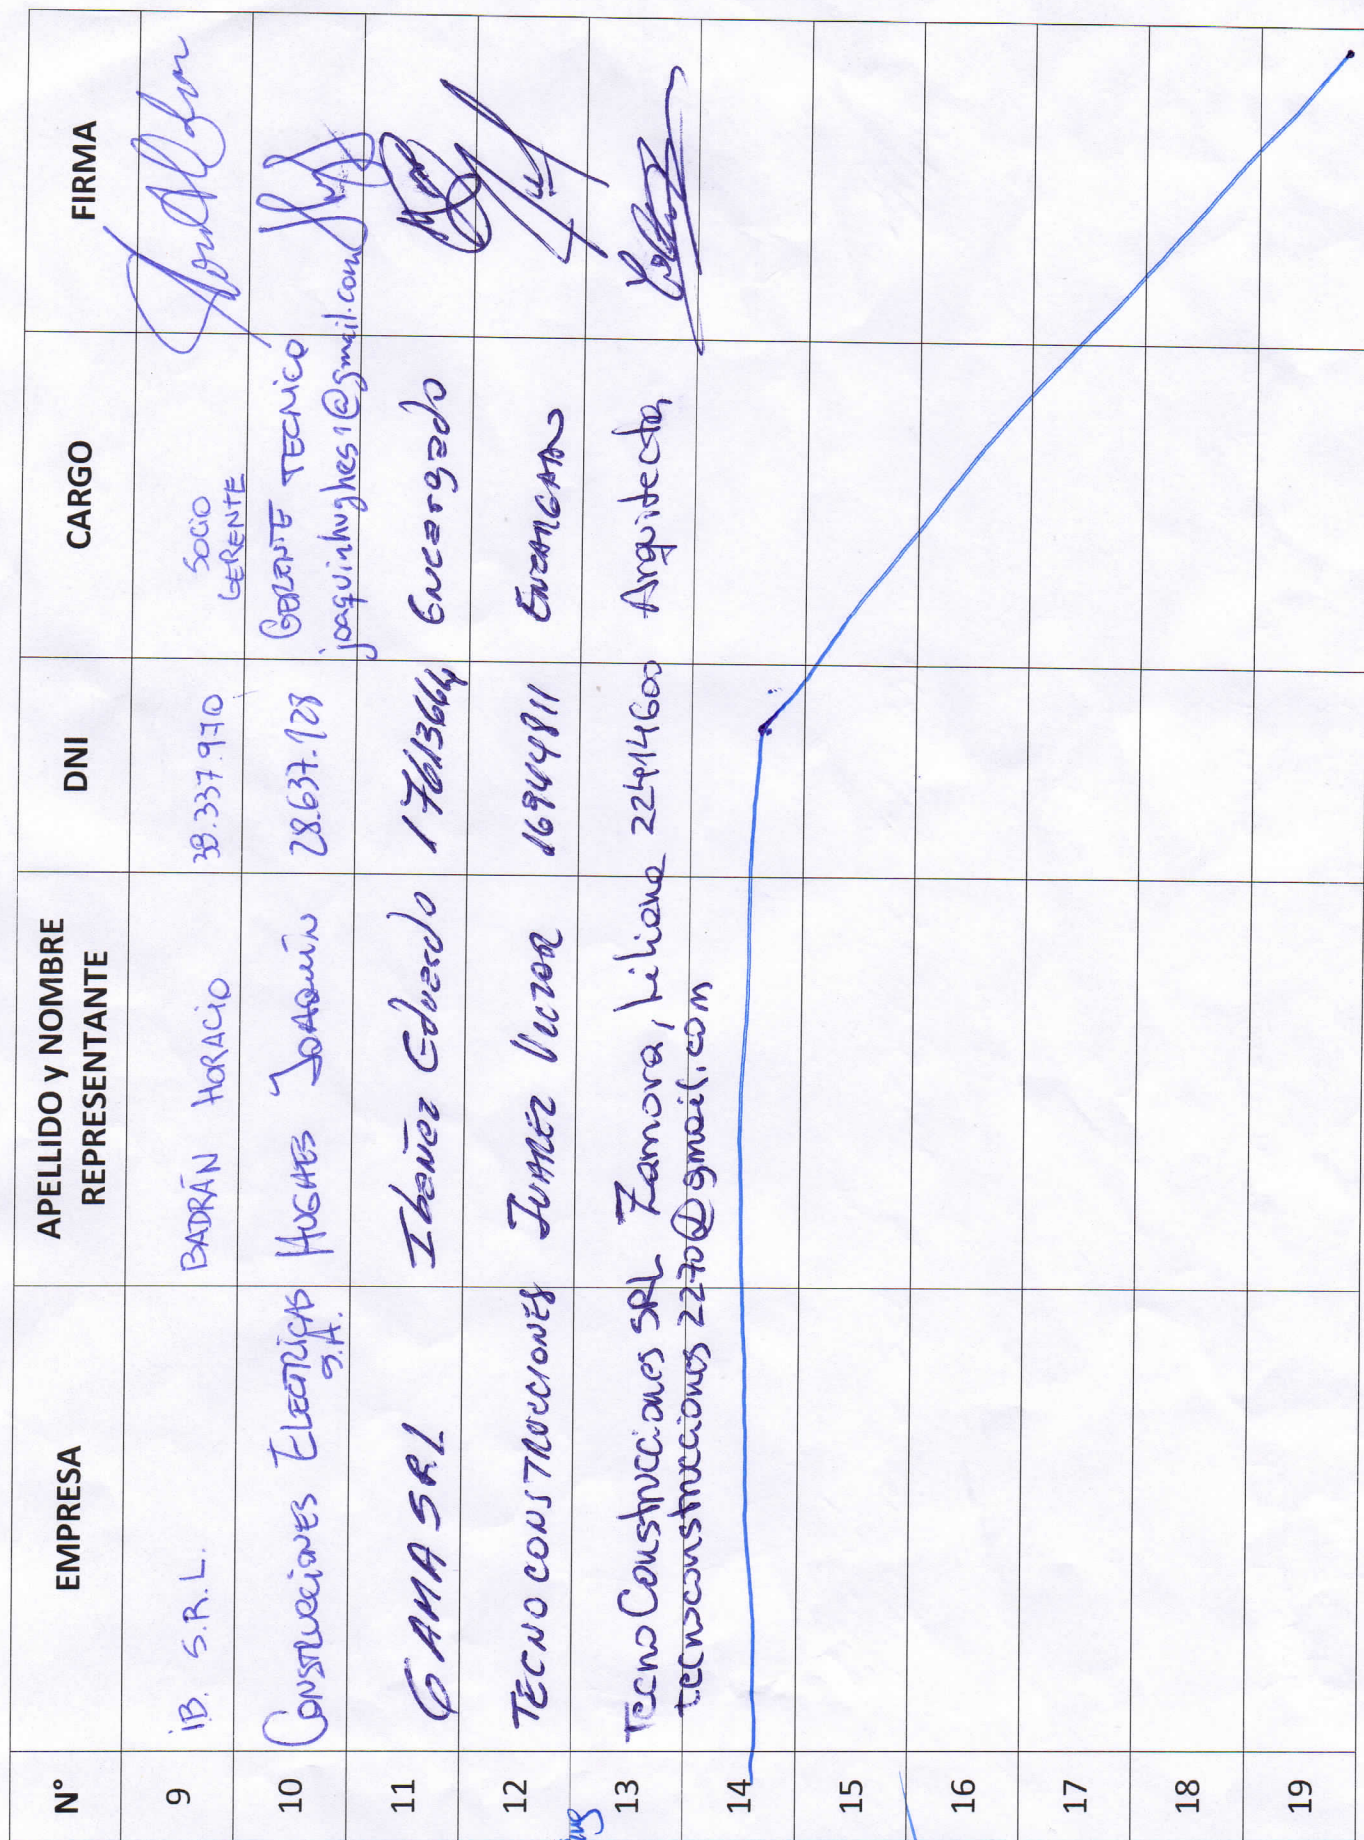 N° EMPRESA APELLIDO y NOMBRE REPRESENTANTE DNI CARGO FIRMA
9 IB. S.R.L. BADRÁN HORACIO 38.337.970 SOCIO GERENTE
10 CONSTRUCCIONES ELECTRICAS S.A. HUGHES JOAQUÍN 28.637.128 GERENTE TECNICO
joaquinhughes1@gmail.com
11 GAMA S.R.L Ibañez Eduardo 17613664 Encargado
12 TECNO CONSTRUCCIONES JUAREZ VICTOR 16944811 ENCARGADO
13 Tecno Construcciones SRL Zamora, Liliana 22414600 Arquitecta
tecnoconstrucciones2270@gmail.com
14
15
16
17
18
19